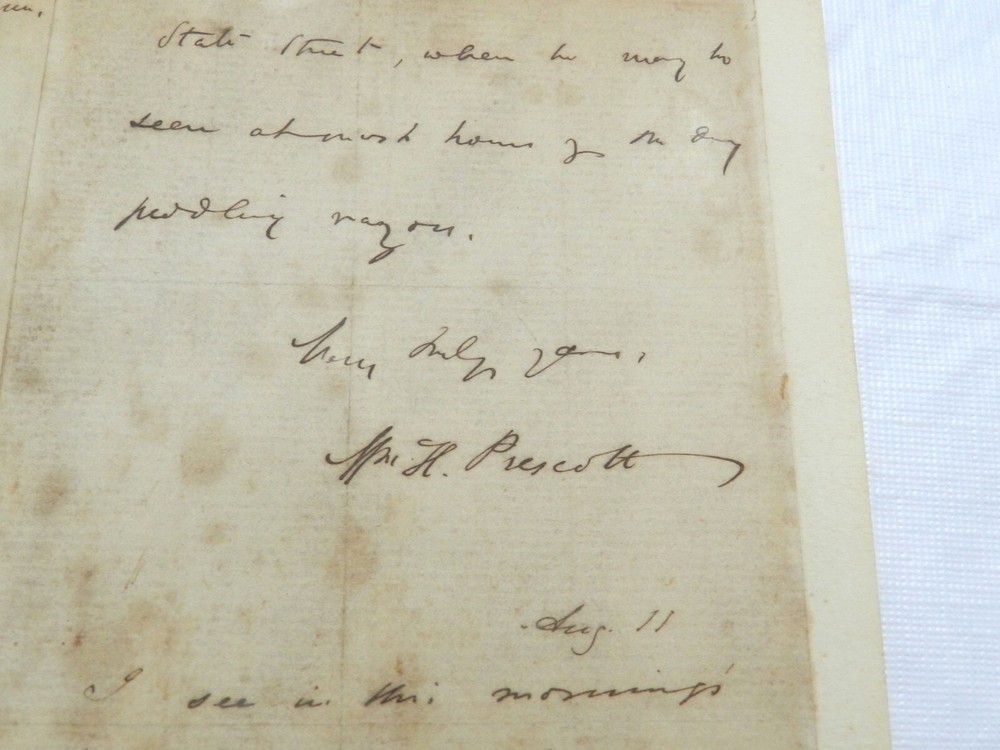 State Street, where he may be
seen at most hours of the day
peddling razors.
Very truly yours,
Wm. H. Prescott
Aug. 11
I see in this morning's